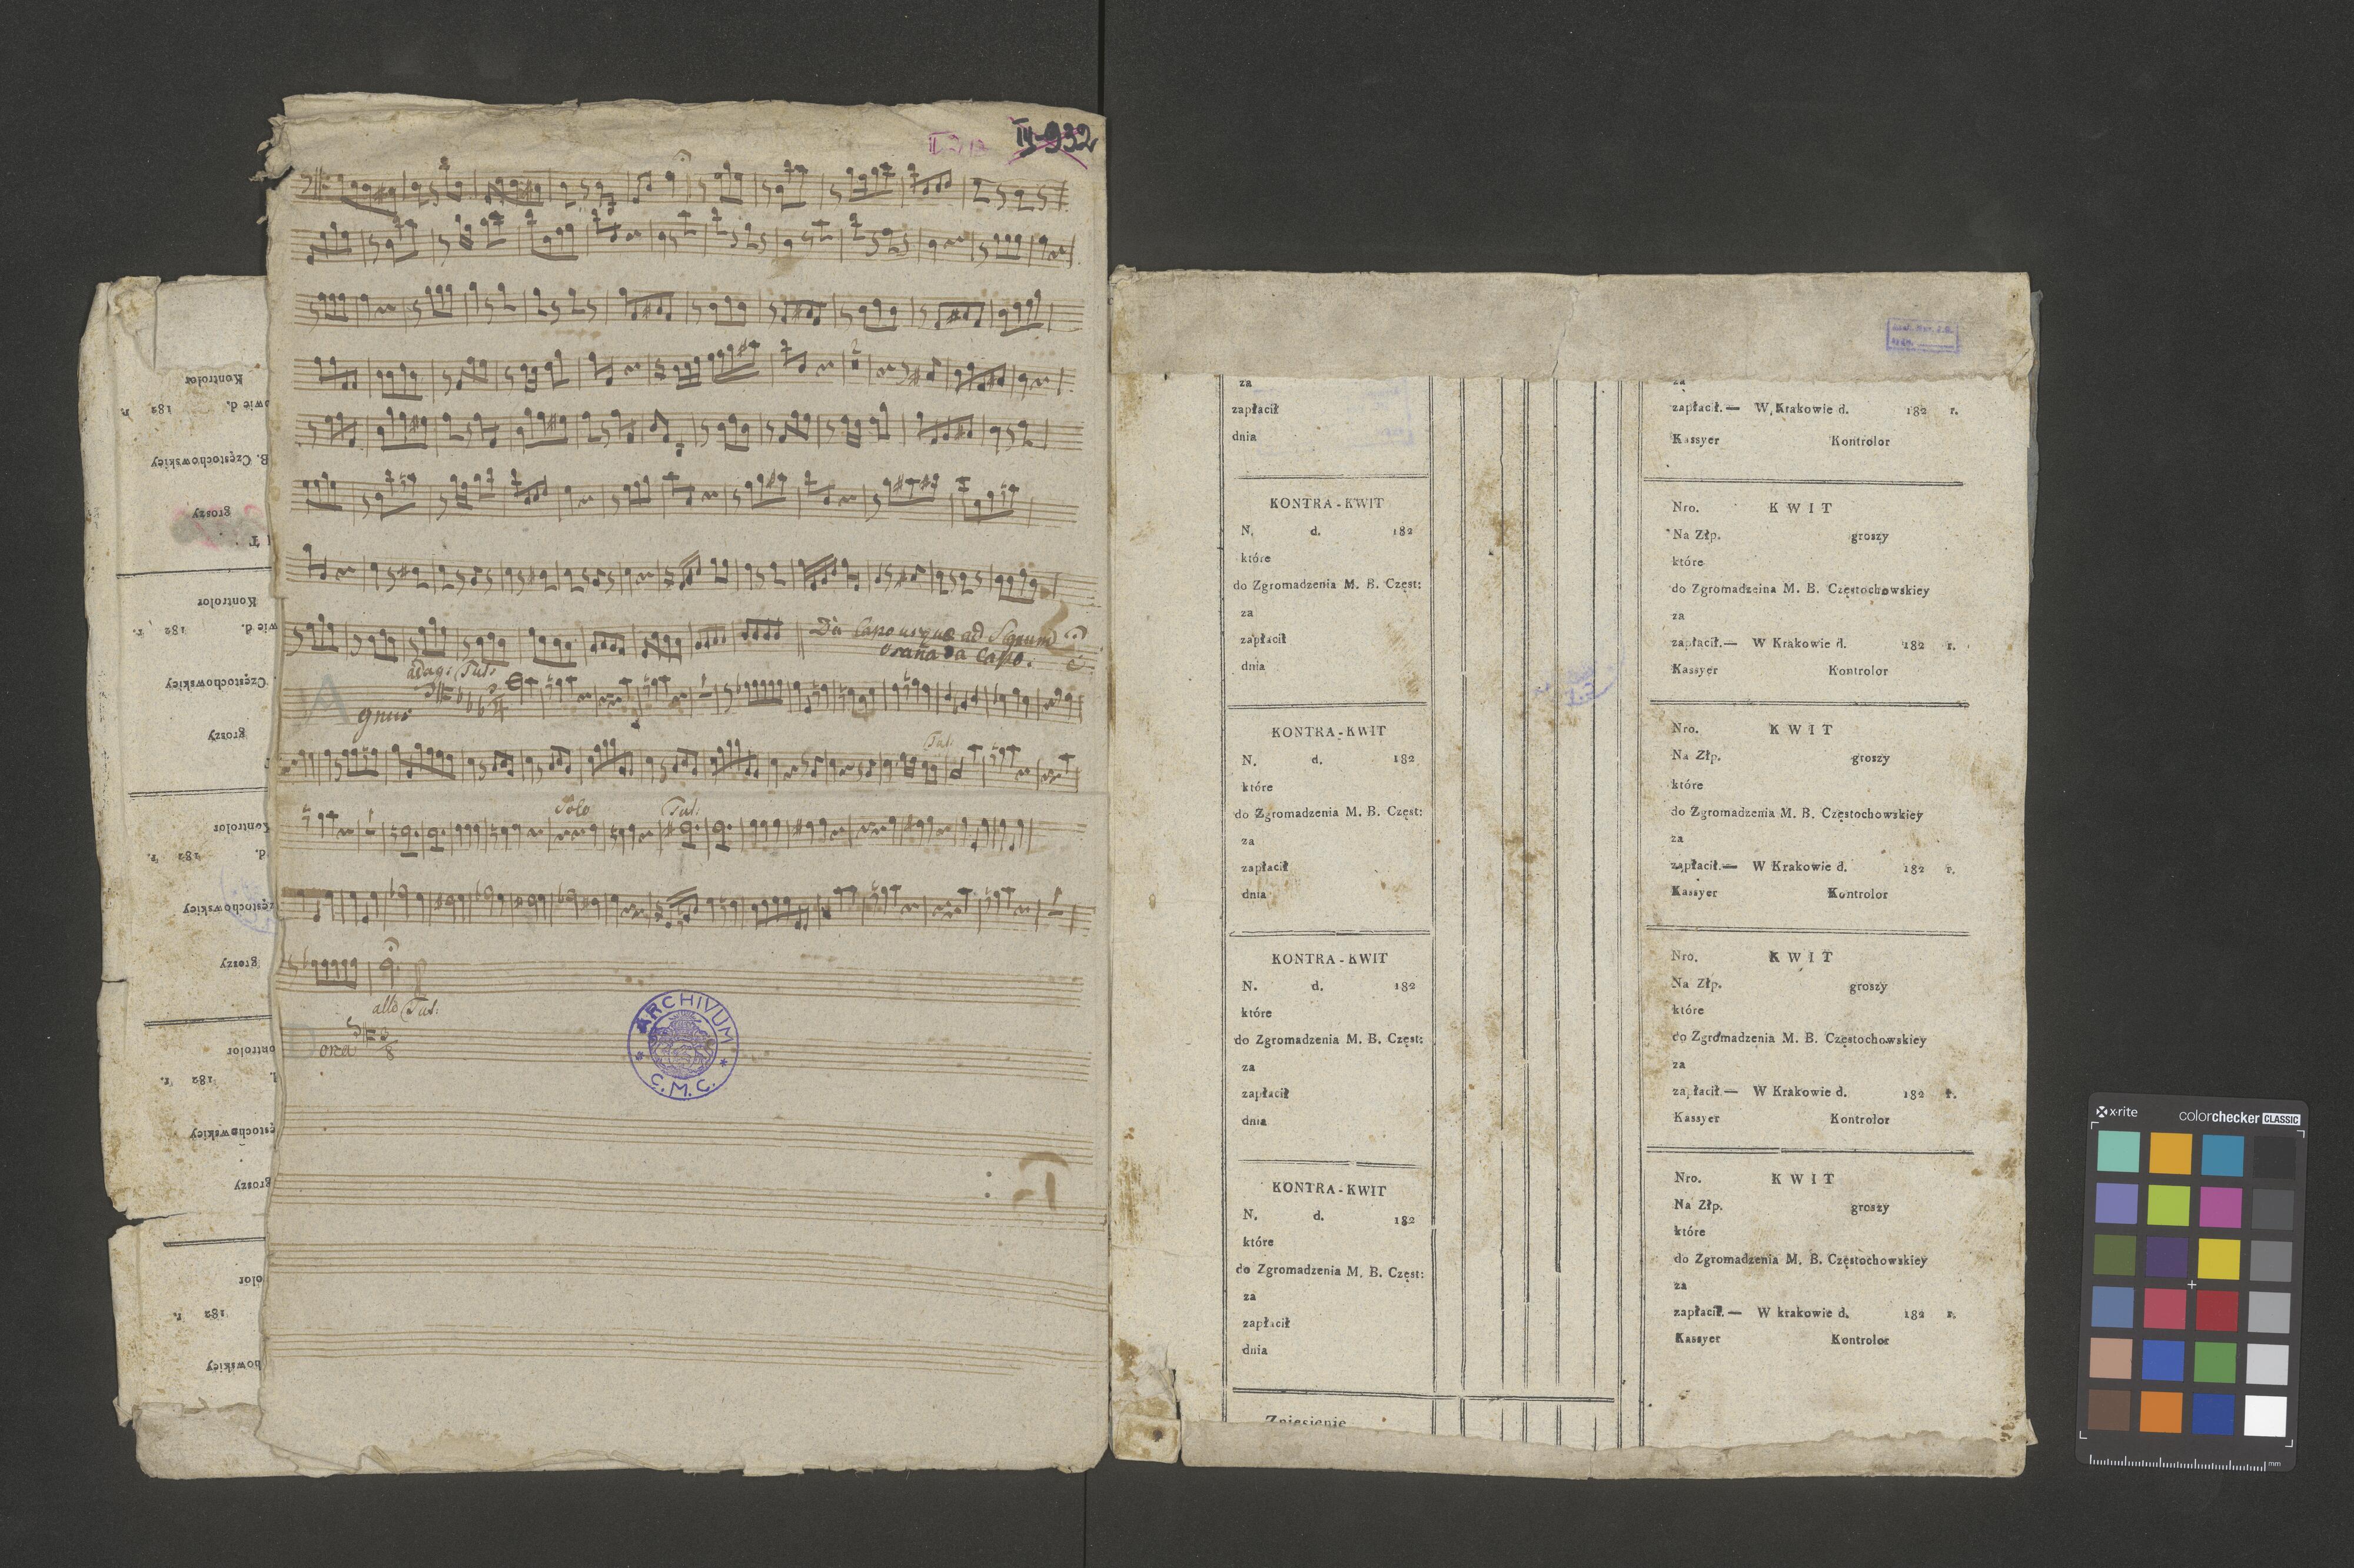 IIJ-932
Da Capo usque ad Signum
osaña Da Capo.
adag: Tut:
Agnus
Tut:
Solo
Tut:
allo Tut:
Dona
ARCHIVUM
C. M. C.
Kontrolor
182 r.
B. Częstochowskiey
groszy
Kontrolor
182 r.
Częstochowskiey
groszy
Kontrolor
d. 182 r.
groszy
182 r.
groszy
182 r.
za
zapłacił
dnia
KONTRA-KWIT
N. d. 182
które
do Zgromadzenia M. B. Częst:
za
zapłacił
dnia
KONTRA-KWIT
N. d. 182
które
do Zgromadzenia M. B. Częst:
za
zapłacił
dnia
KONTRA-KWIT
N. d. 182
które
do Zgromadzenia M. B. Częst:
za
zapłacił
dnia
KONTRA-KWIT
N. d. 182
które
do Zgromadzenia M. B. Częst:
za
zapłacił
dnia
Zniesienie
za
zapłacił.— W Krakowie d. 182 r.
Kassyer Kontrolor
Nro. KWIT
Na Złp. groszy
które
do Zgromadzeina M. B. Częstochowskiey
za
zapłacił.— W Krakowie d. 182 r.
Kassyer Kontrolor
Nro. KWIT
Na Złp. groszy
które
do Zgromadzenia M. B. Częstochowskiey
za
zapłacił.— W Krakowie d. 182 r.
Kassyer Kontrolor
Nro. KWIT
Na Złp. groszy
które
do Zgromadzenia M. B. Częstochowskiey
za
zapłacił— W Krakowie d. 182 r.
Kassyer Kontrolor
Nro. KWIT
Na Złp. groszy
które
do Zgromadzenia M. B. Częstochowskiey
za
zapłacił.— W krakowie d. 182 r.
Kassyer Kontrolor
x-rite colorchecker CLASSIC
mm